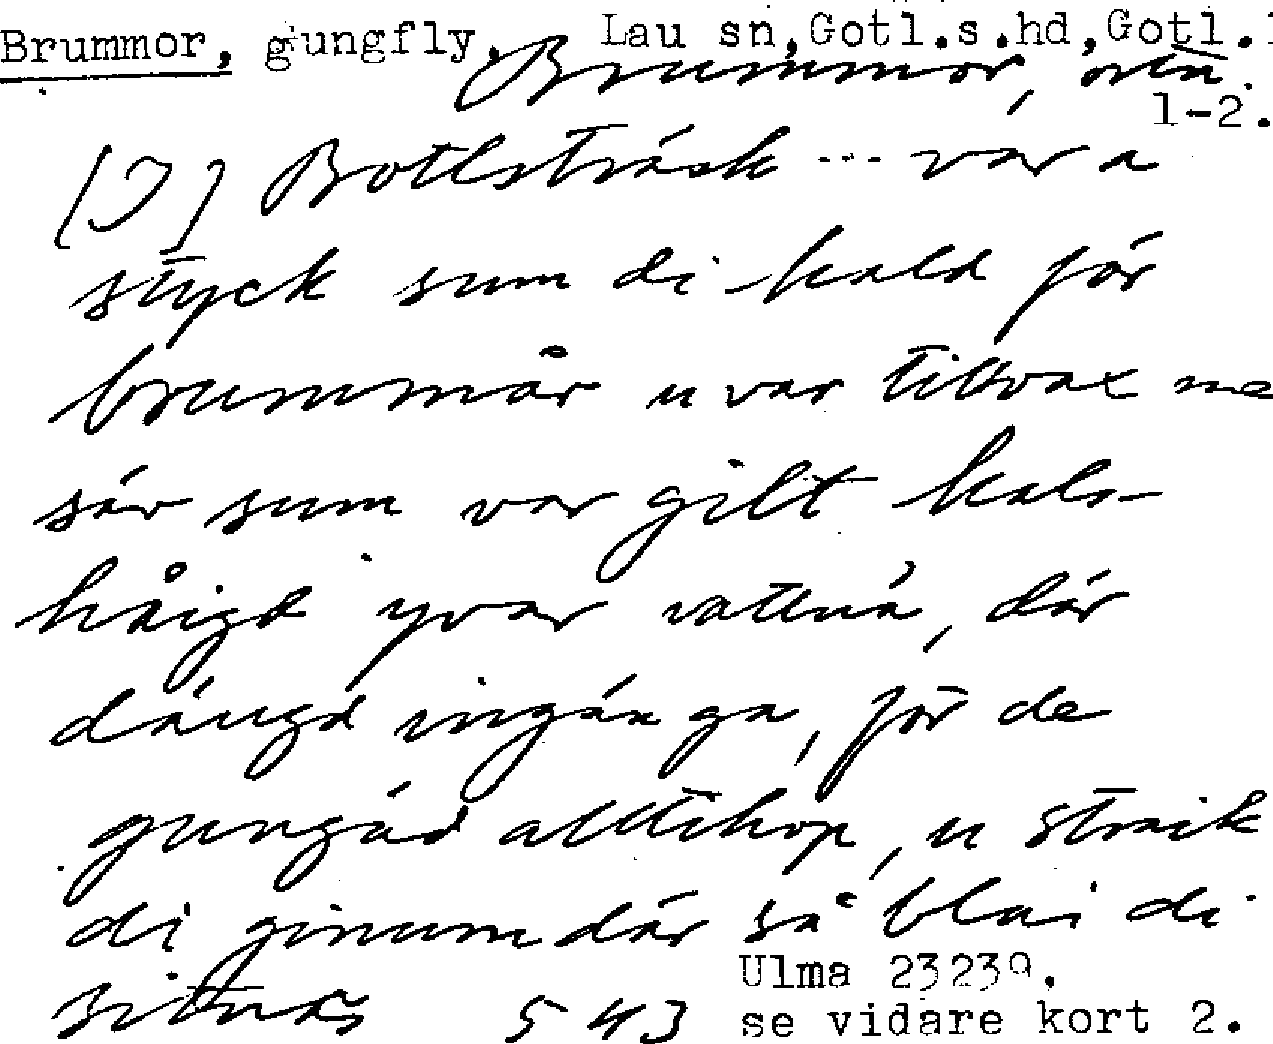 Brummor, gungfly. Lau sn,Gotl.s.hd,Gotl.
Brummor, ortn.
1-2.
[I] Bottlsträsk ... var a
styck sum di kald för
brummår u var tillvax me
säv sum var gilt kals-
håigd yvar vattnä, där
däugd ingän ga, för de
gungäd alltihop, u straik
di ginum där så blai di
sitnäs 543 Ulma 23239.
se vidare kort 2.